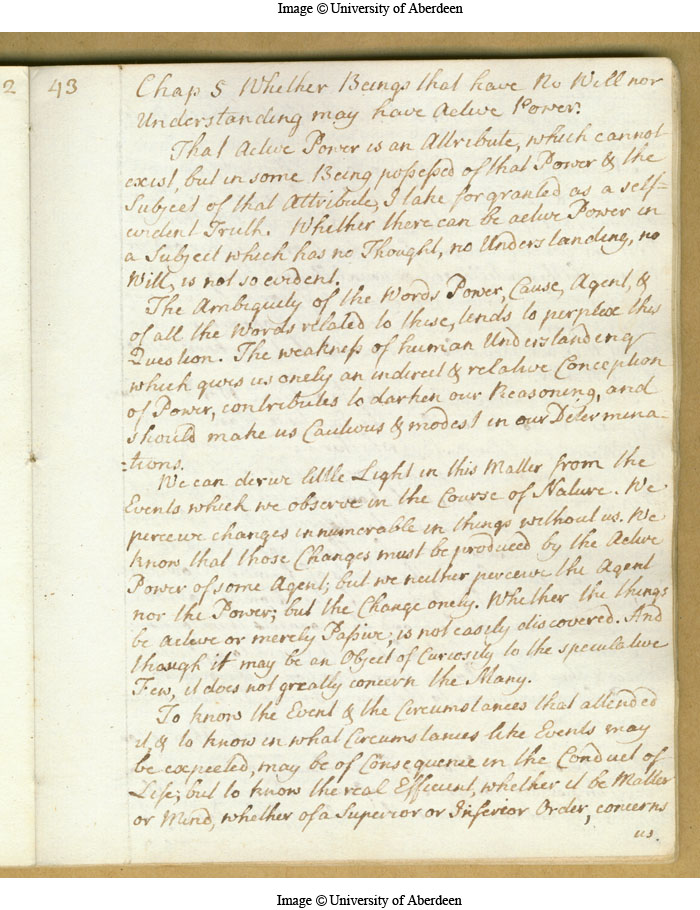 Image © University of Aberdeen
2
43
Chap 5 Whether Beings that have No Will nor
Understanding may have Active Power.
That Active Power is an Attribute, which cannot
exist, but in some Being possessed of that Power & the
Subject of that Attribute, I take for granted as a self=
evident Truth. Whether there can be active Power in
a Subject which has no Thought, no Understanding, no
Will, is not so evident.
The Ambiguity of the Words Power, Cause, Agent, &
of all the Words related to these, tends to perplex this
Question. The weakness of human Understanding
which gives us onely an indirect & relative Conception
of Power, contributes to darken our Reasoning, and
should make us Cautious & modest in our Determina-
:tions.
We can derive little Light in this Matter from the
Events which we observe in the Course of Nature. We
perceive changes innumerable in things without us. We
know that those Changes must be produced by the Active
Power of some Agent; but we neither perceive the Agent
nor the Power; but the Change onely. Whether the things
be active or merely Passive, is not easily discovered. And
though it may be an Object of Curiosity to the speculative
Few, it does not greatly concern the Many.
To know the Event & the Circumstances that attended
it, & to know in what Circumstances like Events may
be expected, may be of Consequence in the Conduct of
Life; but to know the real Efficient, whether it be Matter
or Mind, whether of a Superior or Inferior Order, concerns
us.
Image © University of Aberdeen